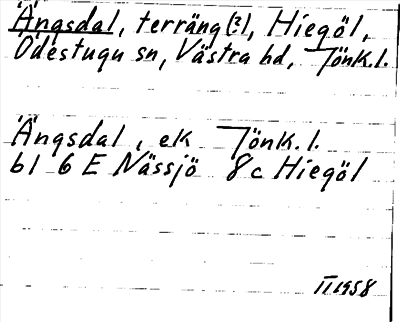 Ängsdal, terräng(?), Hiegöl,
Ödestugu sn, Västra hd, Jönk. l.
Ängsdal, ek Jönk. l.
bl 6 E Nässjö 8c Hiegöl
II 1958